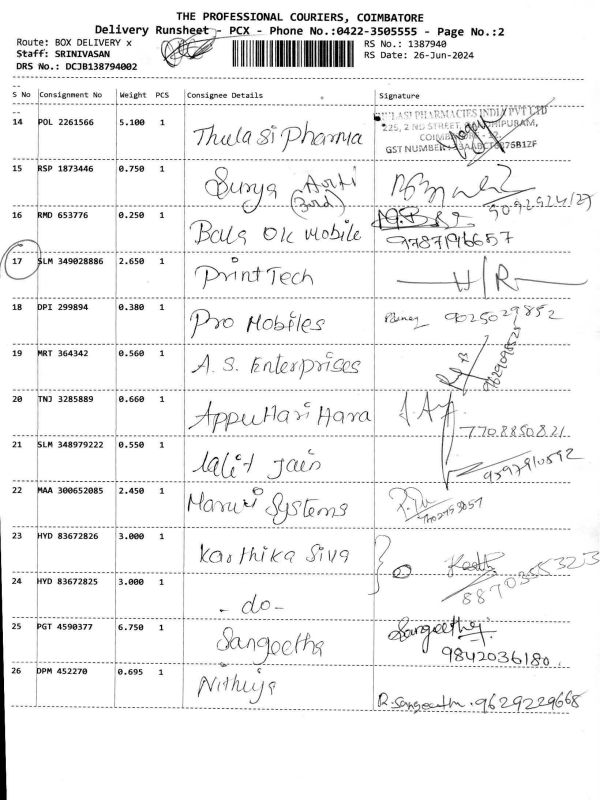 THE PROFESSIONAL COURIERS, COIMBATORE
Delivery Runsheet - PCX - Phone No.:0422-3505555 - Page No.:2
Route: BOX DELIVERY x RS No.: 1387940
Staff: SRINIVASAN RS Date: 26-Jun-2024
DRS No.: DCJB138794002
S No Consignment No Weight PCS Consignee Details Signature
14 POL 2261566 5.100 1 Thulasi Pharma
THULASI PHARMACIES INDIA PVT LTD
225, 2 ND STREET,
GST NUMBER
15 RSP 1873446 0.750 1 Surya
16 RMD 653776 0.250 1 Bala OK Mobile 9787196657
17 SLM 349028886 2.650 1 Print Tech
18 DPI 299894 0.380 1 Pro Mobiles 9025029852
19 MRT 364342 0.560 1 A.S. Enterprises
20 TNJ 3285889 0.660 1 Appu Hari Hara 7708850821
21 SLM 348979222 0.550 1 Lalit Jain
22 MAA 300652085 2.450 1 Maruti Systems
23 HYD 83672826 3.000 1 Karthika Siva 8870355323
24 HYD 83672825 3.000 1 - do -
25 PGT 4590377 6.750 1 Sangeetha Sangeetha
9842036180
26 DPM 452270 0.695 1 Nithiya R. Sangeetha. 9629229668